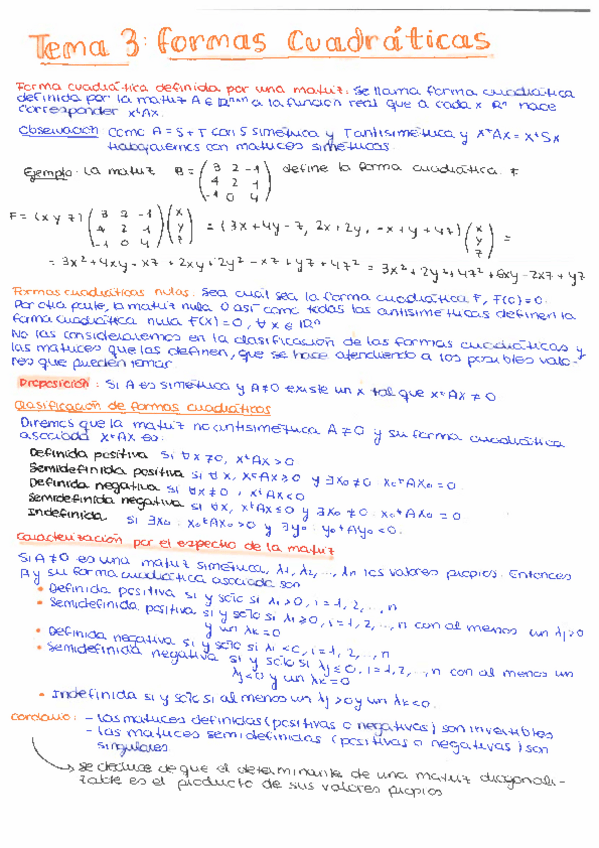 Tema 3: Formas Cuadráticas
Forma cuadrática definida por una matriz: Se llama forma cuadrática
definida por la matriz A ∈ R^nxn a la función real que a cada x R^n hace
corresponder x^tAx.
Observación Como A = S + T con S simétrica y T antisimétrica y x^tAx = x^tSx
trabajaremos con matrices simétricas.
Ejemplo: La matriz B = (3 2 -1 / 4 2 1 / -1 0 4) define la forma cuadrática F
F = (x y z) (3 2 -1 / 4 2 1 / -1 0 4) (x / y / z) = (3x + 4y - z, 2x + 2y, -x + y + 4z) (x / y / z) =
= 3x² + 4xy - xz + 2xy + 2y² - xz + yz + 4z² = 3x² + 2y² + 4z² + 6xy - 2xz + yz
Formas cuadráticas nulas: Sea cuál sea la forma cuadrática F, F(0) = 0.
Por otra parte, la matriz nula 0 así como todas las antisimétricas definen la
forma cuadrática nula F(x) = 0, ∀ x ∈ R^n
No las consideraremos en la clasificación de las formas cuadráticas y
las matrices que las definen, que se hace atendiendo a los posibles valo-
res que pueden tomar.
Proposición: Si A es simétrica y A≠0 existe un x tal que x^tAx ≠ 0
Clasificación de formas cuadráticas
Diremos que la matriz no antisimétrica A ≠ 0 y su forma cuadrática
asociada x^tAx es:
Definida positiva si ∀x ≠ 0, x^tAx > 0
Semidefinida positiva si ∀x, x^tAx ≥ 0 y ∃x₀ ≠ 0 · x₀^tAx₀ = 0
Definida negativa si ∀x ≠ 0, x^tAx < 0
Semidefinida negativa si ∀x, x^tAx ≤ 0 y ∃x₀ ≠ 0 · x₀^tAx₀ = 0
Indefinida si ∃x₀ · x₀^tAx₀ > 0 y ∃y₀ · y₀^tAy₀ < 0.
Caracterización por el espectro de la matriz
Si A ≠ 0 es una matriz simétrica, λ1, λ2, ..., λn los valores propios. Entonces
A y su forma cuadrática asociada son
• Definida positiva si y sólo si λi > 0, i = 1, 2, ..., n
• Semidefinida positiva si y sólo si λi ≥ 0, i = 1, 2, ..., n con al menos un λj > 0
y un λk = 0
• Definida negativa si y sólo si λi < 0, i = 1, 2, ..., n
• Semidefinida negativa si y sólo si λj ≤ 0, i = 1, 2, ..., n con al menos un
λj < 0 y un λk = 0
• Indefinida si y sólo si al menos un λj > 0 y un λk < 0.
Corolario: - Las matrices definidas (positivas o negativas) son invertibles
- Las matrices semidefinidas (positivas o negativas) son
singulares
→ Se deduce de que el determinante de una matriz diagonali-
zable es el producto de sus valores propios